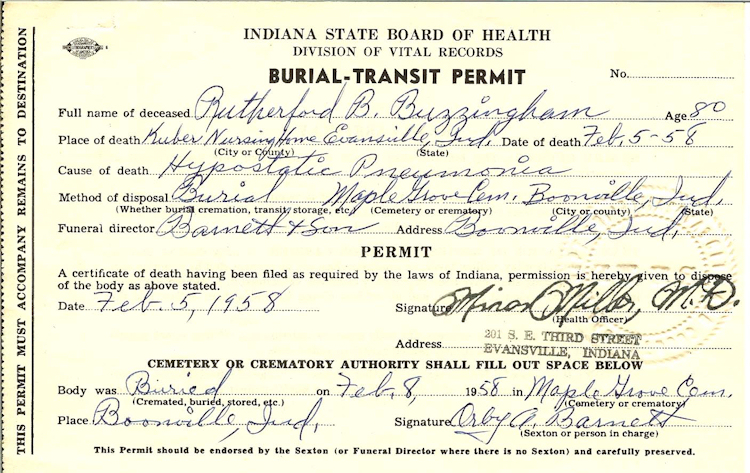 INDIANA STATE BOARD OF HEALTH
DIVISION OF VITAL RECORDS
BURIAL-TRANSIT PERMIT
No.
Full name of deceased Rutherford B. Buzzingham Age 80
Place of death Kuber Nursing Home Evansville, Ind. Date of death Feb. 5-58
(City or County) (State)
Cause of death Hypostatic Pneumonia
Method of disposal Burial Maple Grove Cem. Boonville, Ind.
(Whether burial, cremation, transit, storage, etc.) (Cemetery or crematory) (City or county) (State)
Funeral director Barnett & Son Address Boonville, Ind.
PERMIT
A certificate of death having been filed as required by the laws of Indiana, permission is hereby given to dispose
of the body as above stated.
Date Feb. 5, 1958 Signature Minor Miller, M.D.
(Health Officer)
Address 201 S. E. THIRD STREET
EVANSVILLE, INDIANA
CEMETERY OR CREMATORY AUTHORITY SHALL FILL OUT SPACE BELOW
Body was Buried on Feb. 8, 1958 in Maple Grove Cem.
(Cremated, buried, stored, etc.) (Cemetery or crematory)
Place Boonville, Ind. Signature Orby A. Barnett
(Sexton or person in charge)
This Permit should be endorsed by the Sexton (or Funeral Director where there is no Sexton) and carefully preserved.
THIS PERMIT MUST ACCOMPANY REMAINS TO DESTINATION